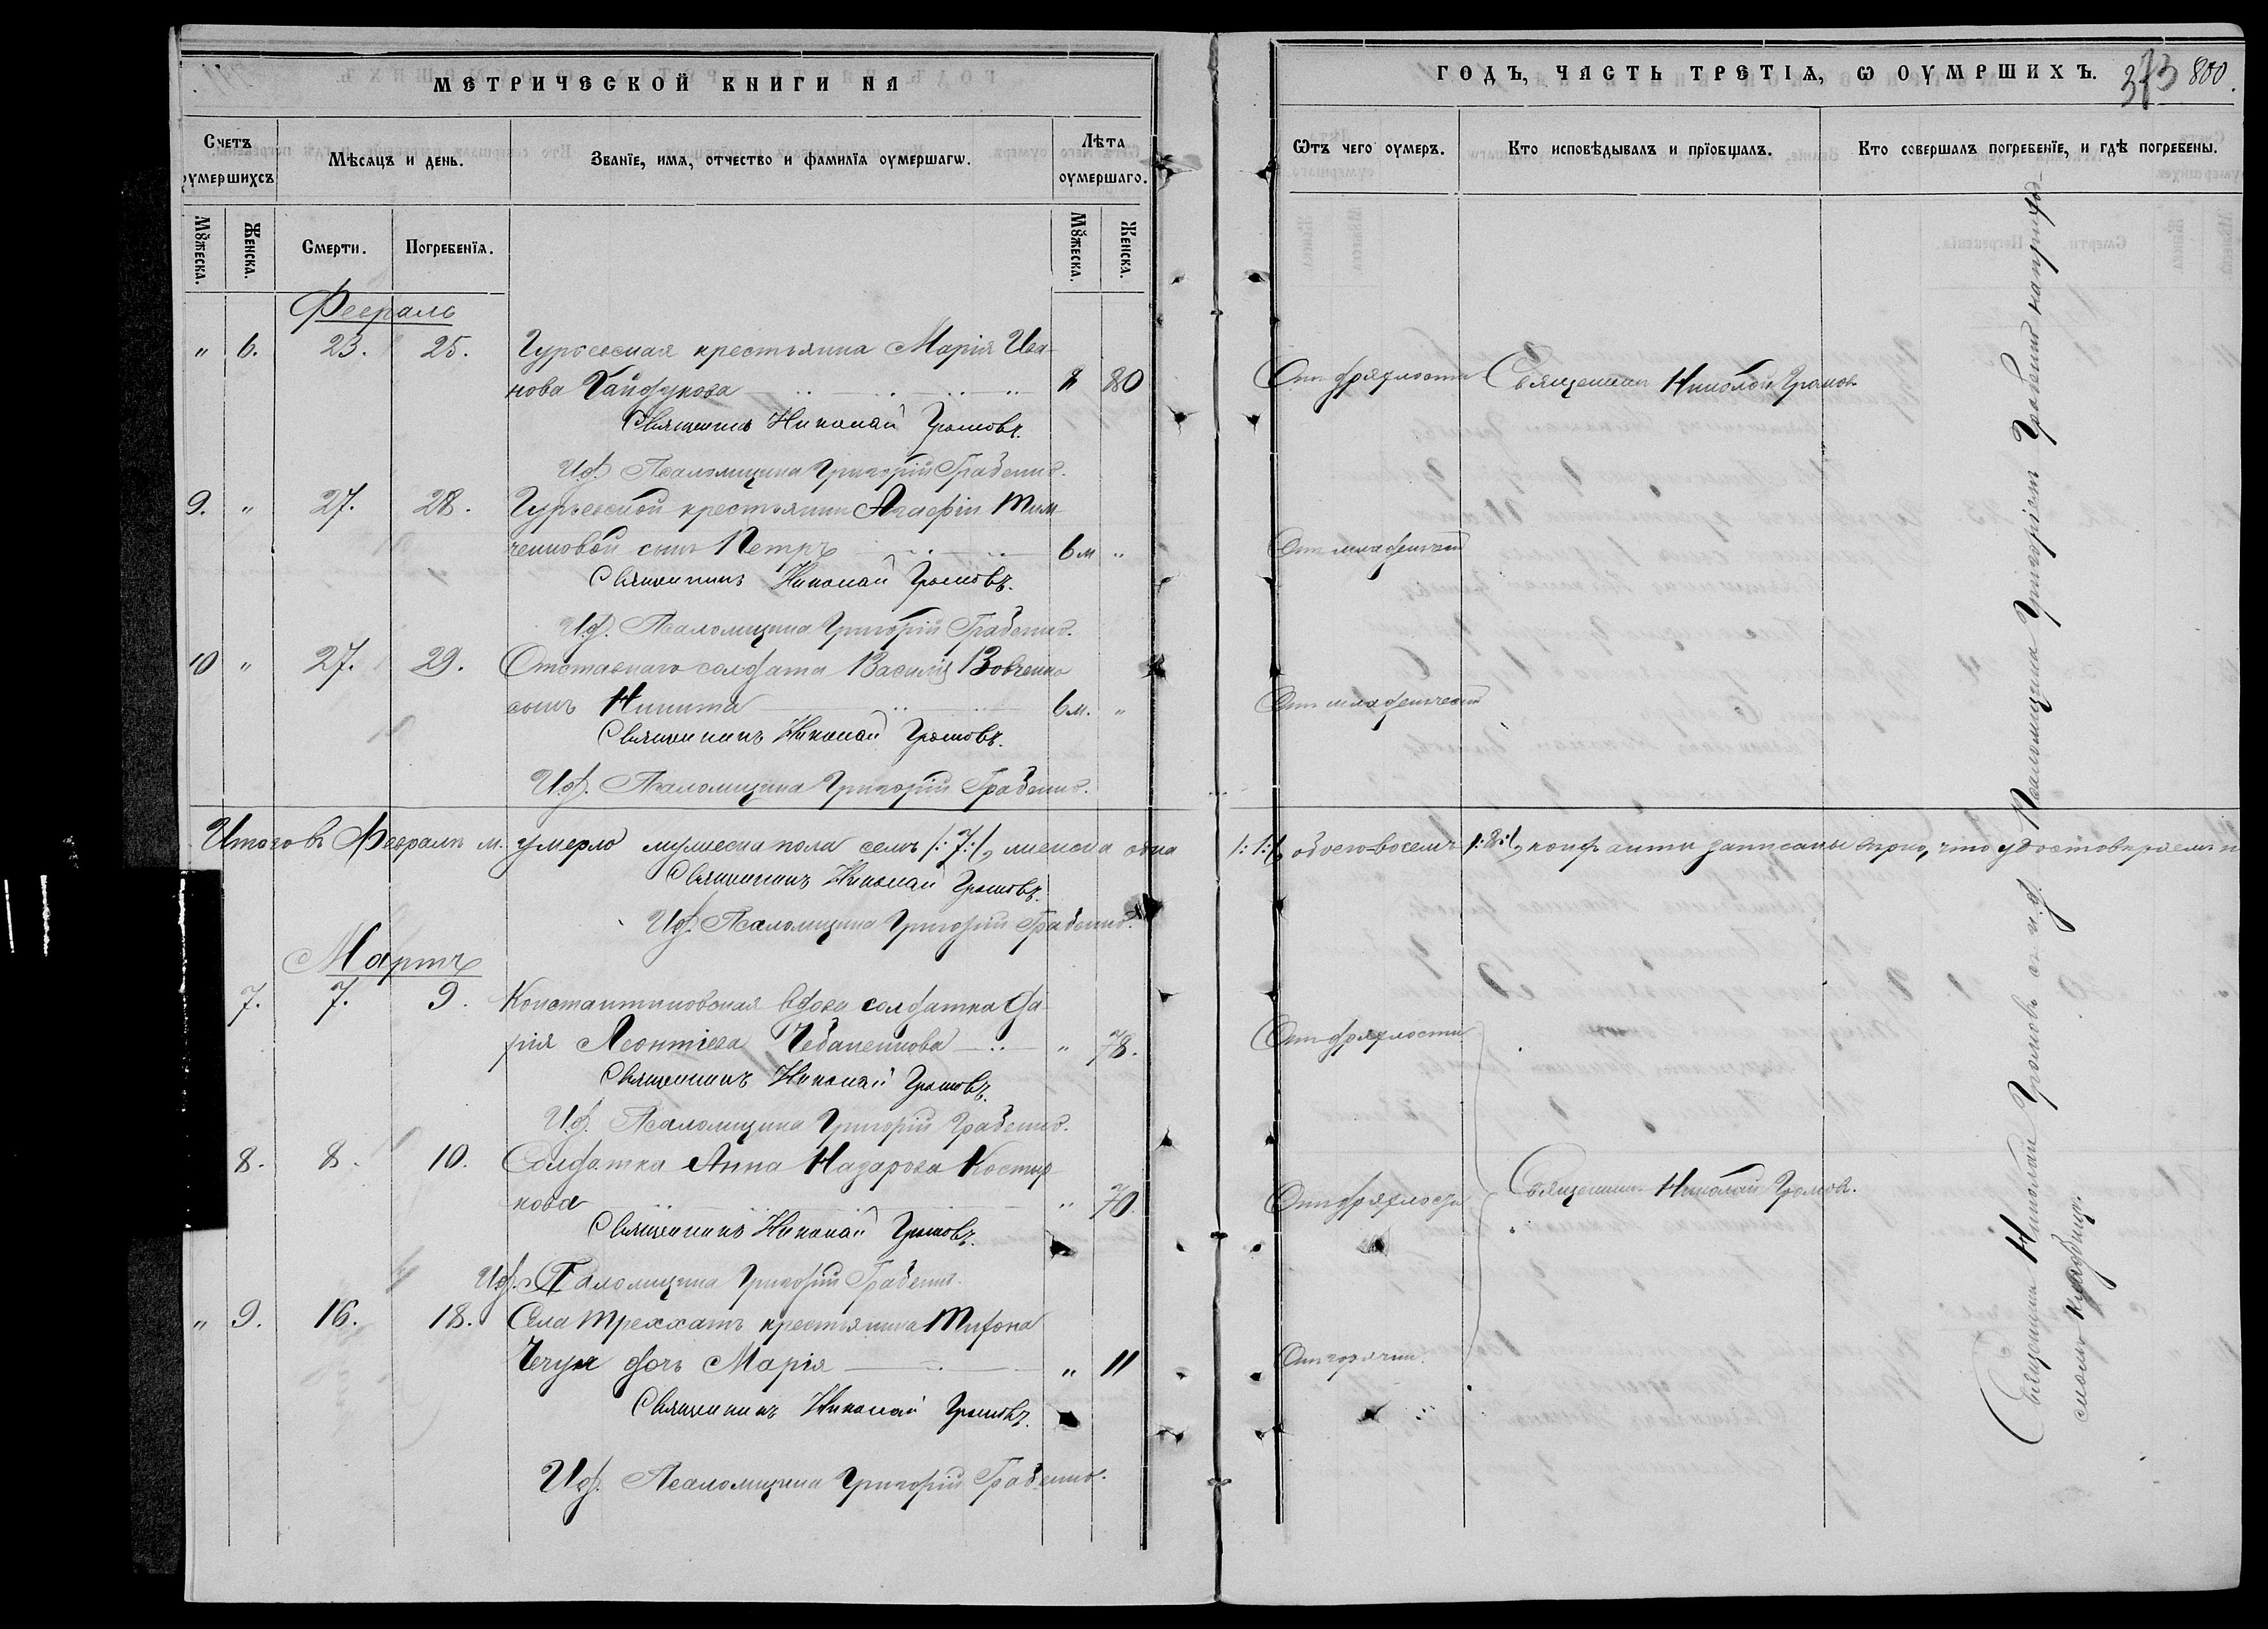 МЕТРИЧЕСКОЙ КНИГИ НА
ГОДЪ, ЧАСТЬ ТРЕТІѦ, Ѡ ОУМРШИХЪ. 373 800.
Счетъ оумершихсѧ
Мѣсѧцъ и день.
Званїе, имѧ, отчество и фамилїѧ оумершагѡ.
Лѣта оумершаго.
Ѿтъ чего оумеръ.
Кто исповѣдывалъ и прїобщалъ.
Кто совершалъ погребенїе, и гдѣ погребены.
Мꙋжеска.
Женска.
Смерти.
Погребенїѧ.
Мꙋжеска.
Женска.
Февраль
" 6. 23. 25. Гурьевская крестьянка Марія Ива-
нова Гайдукова " 80 Отъ дряхлости Священникъ Николай Громовъ
Священникъ Николай Громовъ.
И.д. Псаломщика Григорій Грабенко.
9. " 27. 28. Гурьевской крестьянки Агафіи Тим-
ченковой сынъ Петръ 6 м " Отъ младенческой
Священникъ Николай Громовъ.
И.д. Псаломщика Григорій Грабенко.
10 " 27. 29. Отставнаго солдата Василія Вовченко
сынъ Никита 6 м. " Отъ младенческой
Священникъ Николай Громовъ.
И.д. Псаломщика Григорій Грабенко.
Итого въ Февралѣ м. умерло мужеска пола семь /:7:/, женска одна /:1:/, обоего восемь /:8:/, записаны вѣрно, что удостовѣряемъ
Священникъ Николай Громовъ.
И.д. Псаломщика Григорій Грабенко.
Мартъ
7. 7. 9. Константиновская вдова солдатка Да-
рія Леонтіева Чебаненкова " 78. Отъ дряхлости
Священникъ Николай Громовъ.
И.д. Псаломщика Григорій Грабенко.
8. 8. 10. Солдатка Анна Назарова Костыр-
кова " 70. Отъ дряхлости Священникъ Николай Громовъ.
Священникъ Николай Громовъ.
И.д. Псаломщика Григорій Грабенко.
" 9. 16. 18. Села Треххатъ крестьянина
дочь Марія " 11 Отъ горячки.
Священникъ Николай Громовъ.
И.д. Псаломщика Григорій Грабенко.
Священникъ Николай Громовъ съ и.д. Псаломщика Григоріемъ Грабенко на приход-
скомъ кладбищѣ.